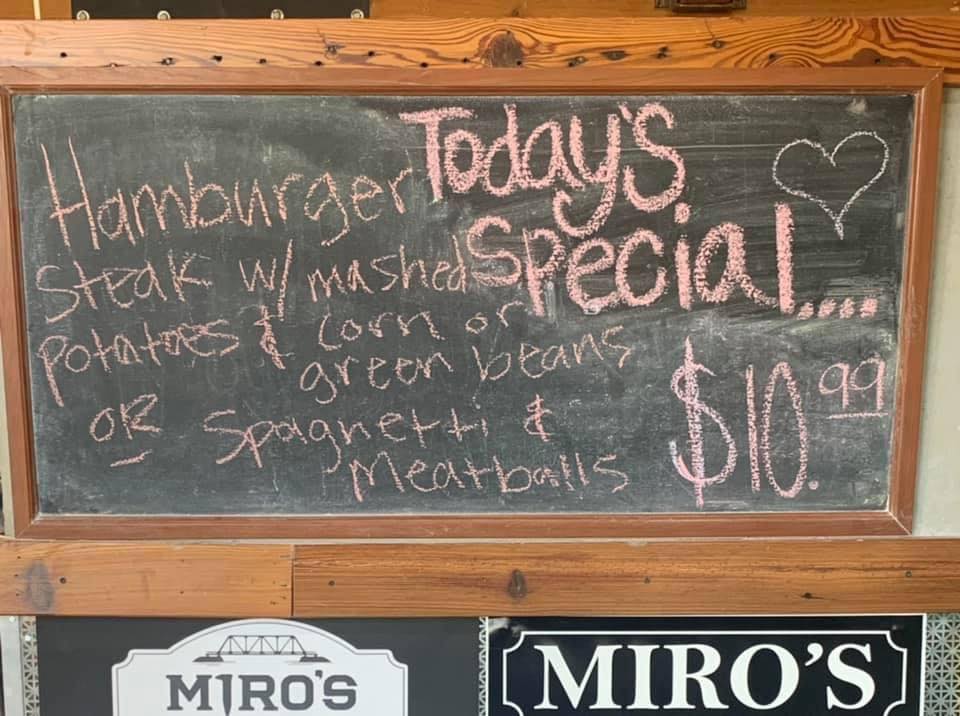 Today's
Special....
Hamburger
steak w/ mashed
potatoes & corn or
green beans
OR Spagnetti &
Meatballs
$10.99
MIRO'S
MIRO'S